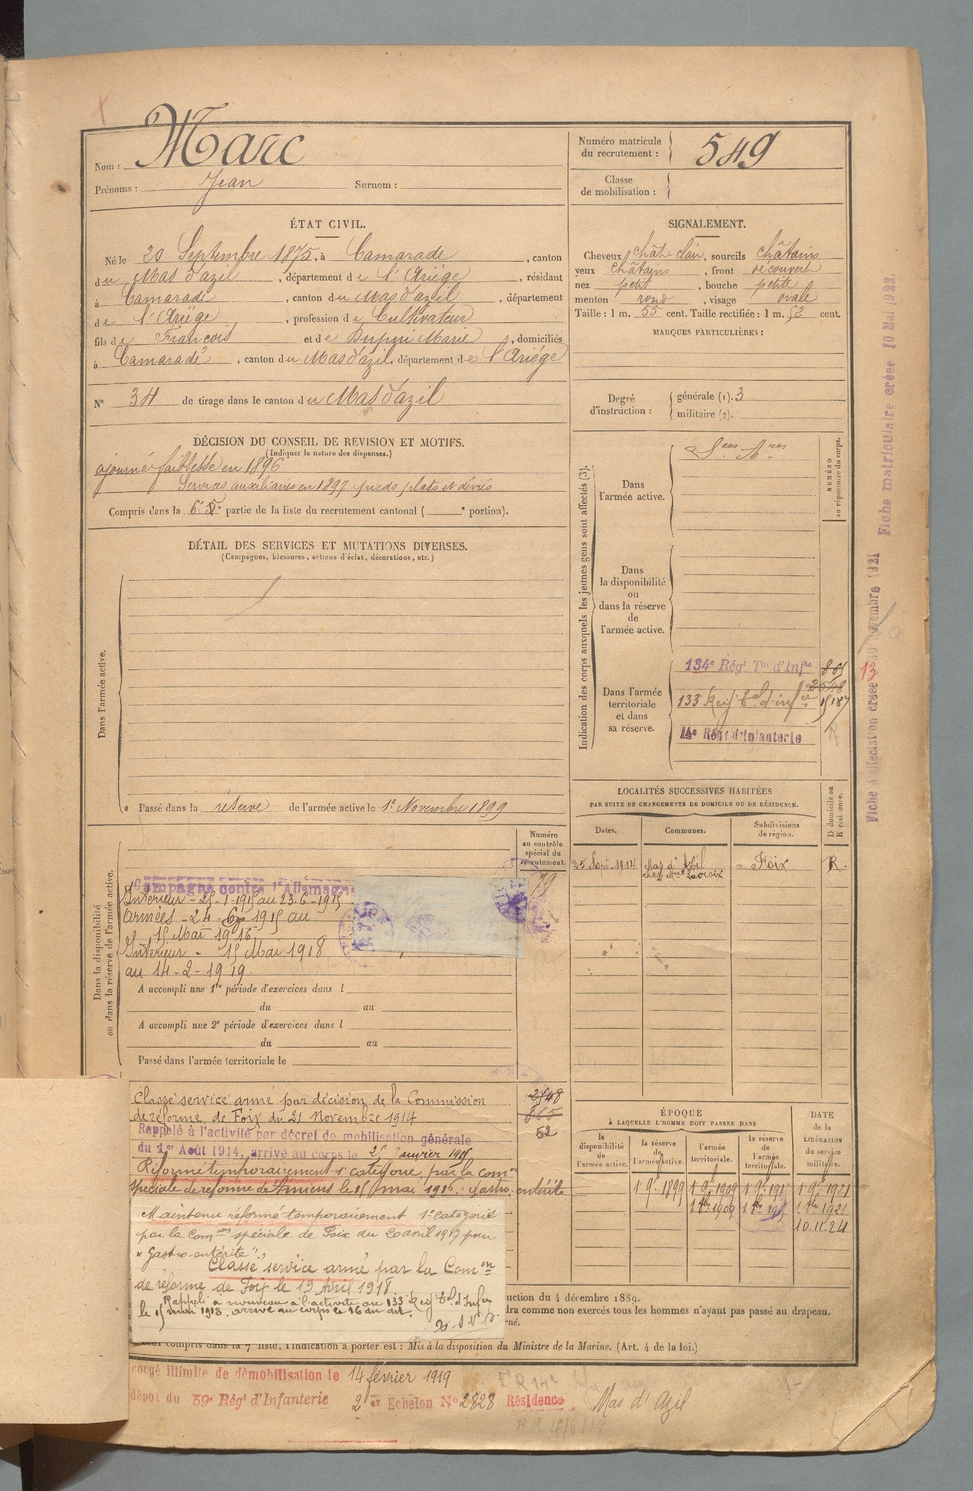 Nom : Marc
Prénoms : Jean Surnom :
Numéro matricule du recrutement : 549
Classe de mobilisation :
ÉTAT CIVIL.
Né le 20 Septembre 1875, à Camarade, canton
du Mas d'azil, département de l'Ariège, résidant
à Camarade, canton du Mas d'azil, département
de l'Ariège, profession de Cultivateur
fils de François et de Dupui Marie, domiciliés
à Camarade, canton du Mas d'azil, département de l'Ariège
N° 34 de tirage dans le canton du Mas d'azil
SIGNALEMENT.
Cheveux chât. clair, sourcils châtains
yeux châtains, front découvert
nez petit, bouche petite
menton rond, visage ovale
Taille : 1 m. 55 cent. Taille rectifiée : 1 m. 52 cent.
MARQUES PARTICULIÈRES :
Degré d'instruction : générale (1). 3
militaire (2).
DÉCISION DU CONSEIL DE REVISION ET MOTIFS.
(Indiquer la nature des dispenses.)
ajourné faiblesse en 1896
Services auxiliaires en 1897 pieds plats et déviés
Compris dans la 6e partie de la liste du recrutement cantonal ( e portion).
DÉTAIL DES SERVICES ET MUTATIONS DIVERSES.
(Campagnes, blessures, actions d'éclat, décorations, etc.)
Dans l'armée active.
Passé dans la réserve de l'armée active le 1er Novembre 1899
Indication des corps auxquels les jeunes gens sont affectés (3).
NUMÉRO au répertoire du corps.
Dans l'armée active.
Dans la disponibilité ou dans la réserve de l'armée active.
Dans l'armée territoriale et dans sa réserve.
134e Régt Tal d'Infie
133 Reg t al d'infie
14e Régt d'Infanterie
Fiche matriculaire créée 10 Mai 1922
13
LOCALITÉS SUCCESSIVES HABITÉES
PAR SUITE DE CHANGEMENTS DE DOMICILE OU DE RÉSIDENCE.
Dates. Communes. Subdivisions de région. D domicile ou R résidence.
25 Sept. 1914 Mas d'Azil Foix R.
Numéro au contrôle spécial du recrutement.
Dans la disponibilité ou dans la réserve de l'armée active.
Campagne contre l'Allemagne
Intérieur - 25-1-1915 au 23-6-1915
Armées - 24-6-1915 au
15 Mai 1916
Intérieur - 15 Mai 1918
au 14-2-1919.
A accompli une 1re période d'exercices dans l
du au
A accompli une 2e période d'exercices dans l
du au
Passé dans l'armée territoriale le
Classé service armé par décision de la Commission
de réforme de Foix du 21 Novembre 1914
2548
865
52
Rappelé à l'activité par décret de mobilisation générale
du 1er Août 1914, arrivé au corps le 25 Janvier 1915
Réformé temporairement 1e catégorie par la Comon
spéciale de réforme d'Amiens le 15 mai 1916 : gastro-entérite
Maintenu réformé temporaiement 1e catégorie
par la Comon spéciale de Foix du 20 avril 1917 pour
"Gastro-entérite".
Classé service armé par la Comon
de réforme de Foix le 19 Avril 1918
Rappelé à nouveau à l'activité au 133 Reg t al d'Infie
le 15 mai 1918. arrivé au corps le 16 au dit.
ÉPOQUE
À LAQUELLE L'HOMME DOIT PASSER DANS
la disponibilité de l'armée active. la réserve de l'armée active. l'armée territoriale. la réserve de l'armée territoriale.
DATE de la LIBÉRATION du service militaire.
1 9e 1899 1 9e 1909 1 9e 1915 1 9e 1921
10.11.24
ruction du 4 décembre 1889.
dra comme non exercés tous les hommes n'ayant pas passé au drapeau.
compris dans la 7e liste, l'indication à porter est : Mis à la disposition du Ministre de la Marine. (Art. 4 de la loi.)
congé illimité de démobilisation le 14 février 1919
dépôt du 59e Régt d'Infanterie 2e Echelon N° 2828 Résidence Mas d'Azil